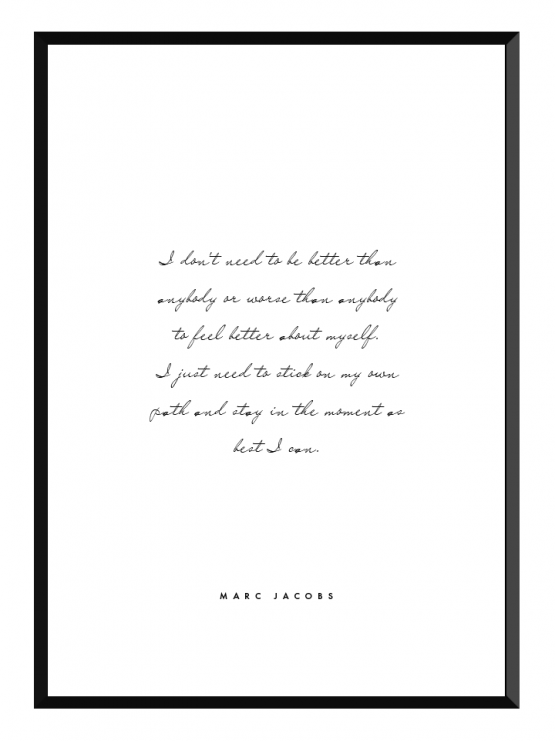 I don't need to be better than
anybody or worse than anybody
to feel better about myself.
I just need to stick on my own
path and stay in the moment as
best I can.
MARC JACOBS